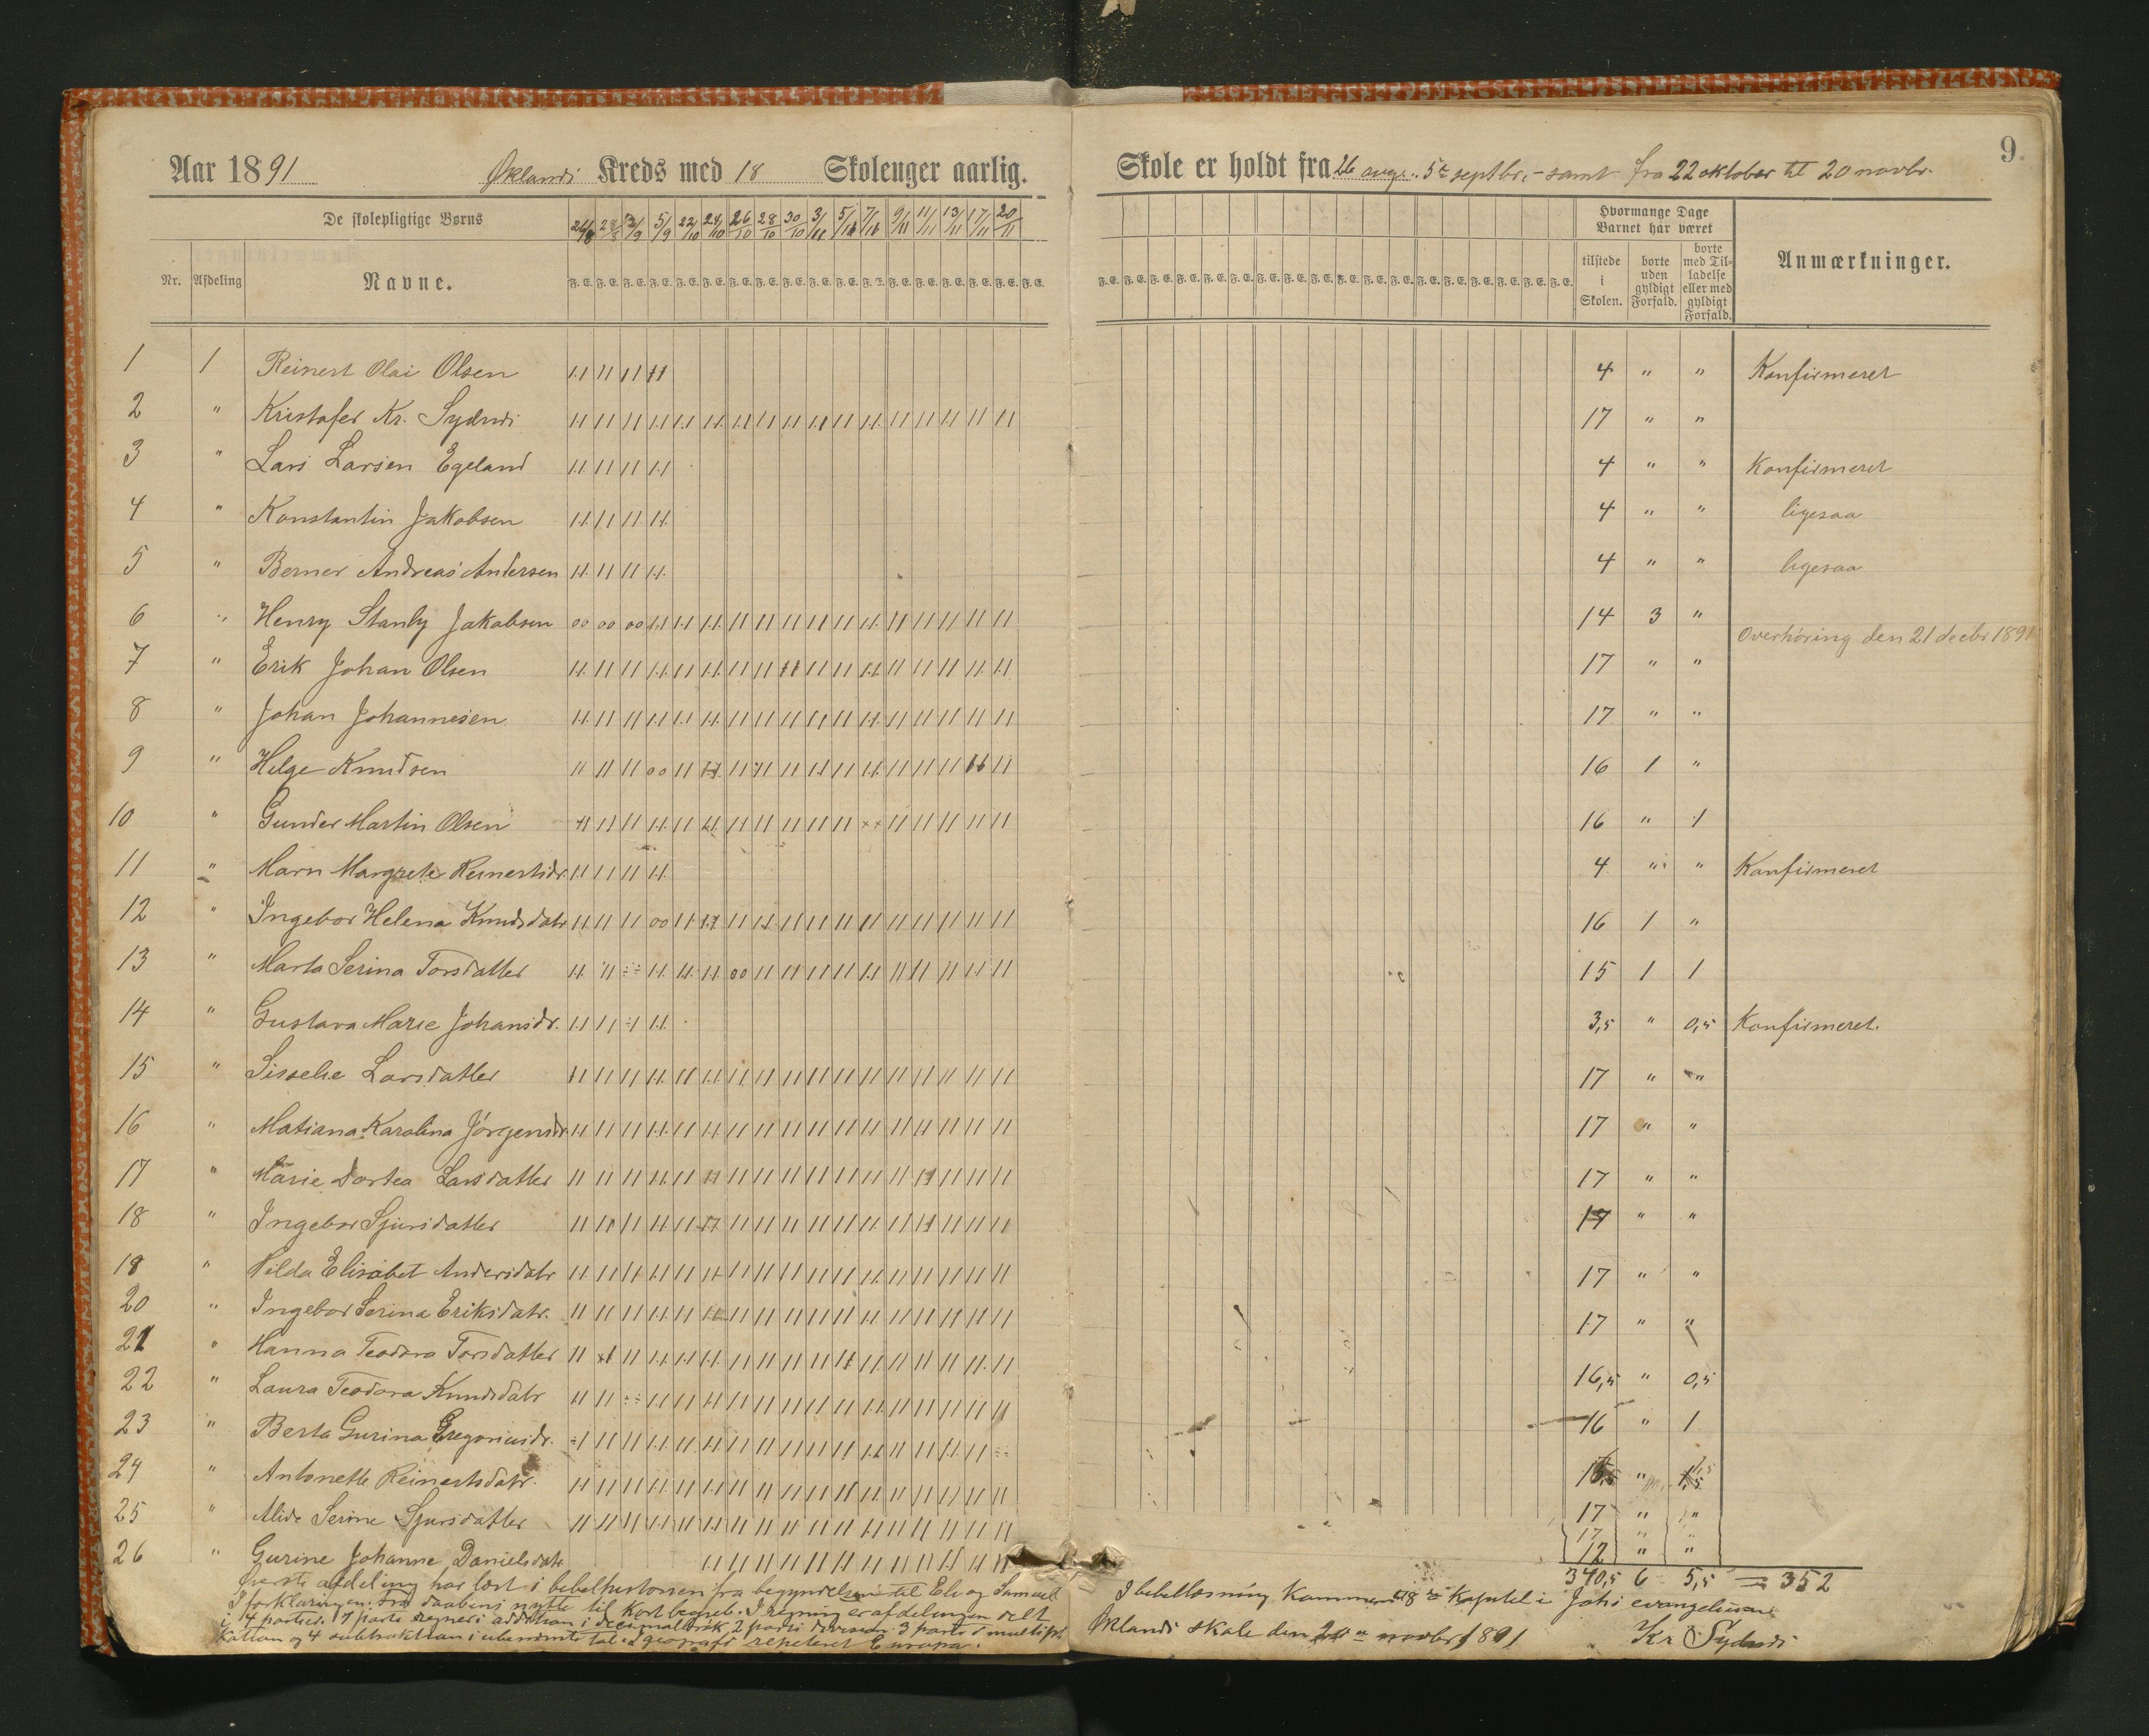 Aar 1891 Øklands Kreds med 18 Skoleuger aarlig.
Skole er holdt fra 26 augs. 5te septbr. - samt fra 22 oktober til 20 novbr.
9.
De skolepligtige Børns
26/8 28/8 2/9 5/9 22/10 24/10 26/10 28/10 30/10 3/11 5/11 7/11 9/11 11/11 13/11 17/11 20/11
Hvormange Dage Barnet har været
Nr. Afdeling Navne.
F. E. F. E. F. E. F. E. F. E. F. E. F. E. F. E. F. E. F. E. F. E. F. E. F. E. F. E. F. E. F. E. F. E. F. E.
tilstede i Skolen. borte uden gyldigt Forfald. borte med Tilladelse eller med gyldigt Forfald. Anmærkninger.
1 1 Reinert Olai Olsen 4 " " Konfirmeret
2 " Kristofer Kr. Sydnes 17 " "
3 " Lars Larsen Egeland 4 " " Konfirmeret
4 " Konstantin Jakobsen 4 " " ligesaa
5 " Berner Andreas Andersen 4 " " ligesaa
6 " Henry Stanly Jakobsen 14 3 "
Overhøring den 21 decbr 1891
7 " Erik Johan Olsen 17 " "
8 " Johan Johannesen 17 " "
9 " Helge Knudsen 16 1 "
10 " Gunder Martin Olsen 16 " 1
11 " Marn Margrete Reinertsdr. 4 " " Konfirmeret
12 " Ingebor Helena Knudsdatr 16 1 "
13 " Marta Serina Torsdatter 15 1 1
14 " Gustava Marie Johansdr. 3,5 " 0,5 Konfirmeret.
15 " Sisselie Larsdatter 17 " "
16 " Matiana Karolina Jörgensdr. 17 " "
17 " Marie Dortea Larsdatter 17 " "
18 " Ingebor Sjursdatter 17 " "
19 " Hilda Elisabet Andersdatr 17 " "
20 " Ingebor Serina Eriksdatr. 17 " "
21 " Hanna Teodora Torsdatter 16,5 " 0,5
22 " Laura Teodora Knudsdatr 16 " 1
23 " Berta Gurina Gregoriusdr. 15,5 " 1,5
24 " Antonette Reinertsdatr. 17 " "
25 " Alide Serine Sjursdatter 17 " "
26 " Gurine Johanne Danielsdatr 12 " "
340,5 6 5,5 = 352
første afdeling har læst i bibelhistorien fra begyndelsen til Eli og Samuel
I forklaringen: fra daabens nytte til Kort begreb. I regning er afdelingen delt
i 4 partier. 1 parti regner i addition i decimalbrøk, 2 parti division 3 parti i multipli-
kation og 4 subtraktion i ubenævnte tal. I geografi repeteret Europa.
I bibellæsning kommen til 8de kapitel i Johs evangelium
Øklands skole den 20de novbr 1891 Kr Sydnes